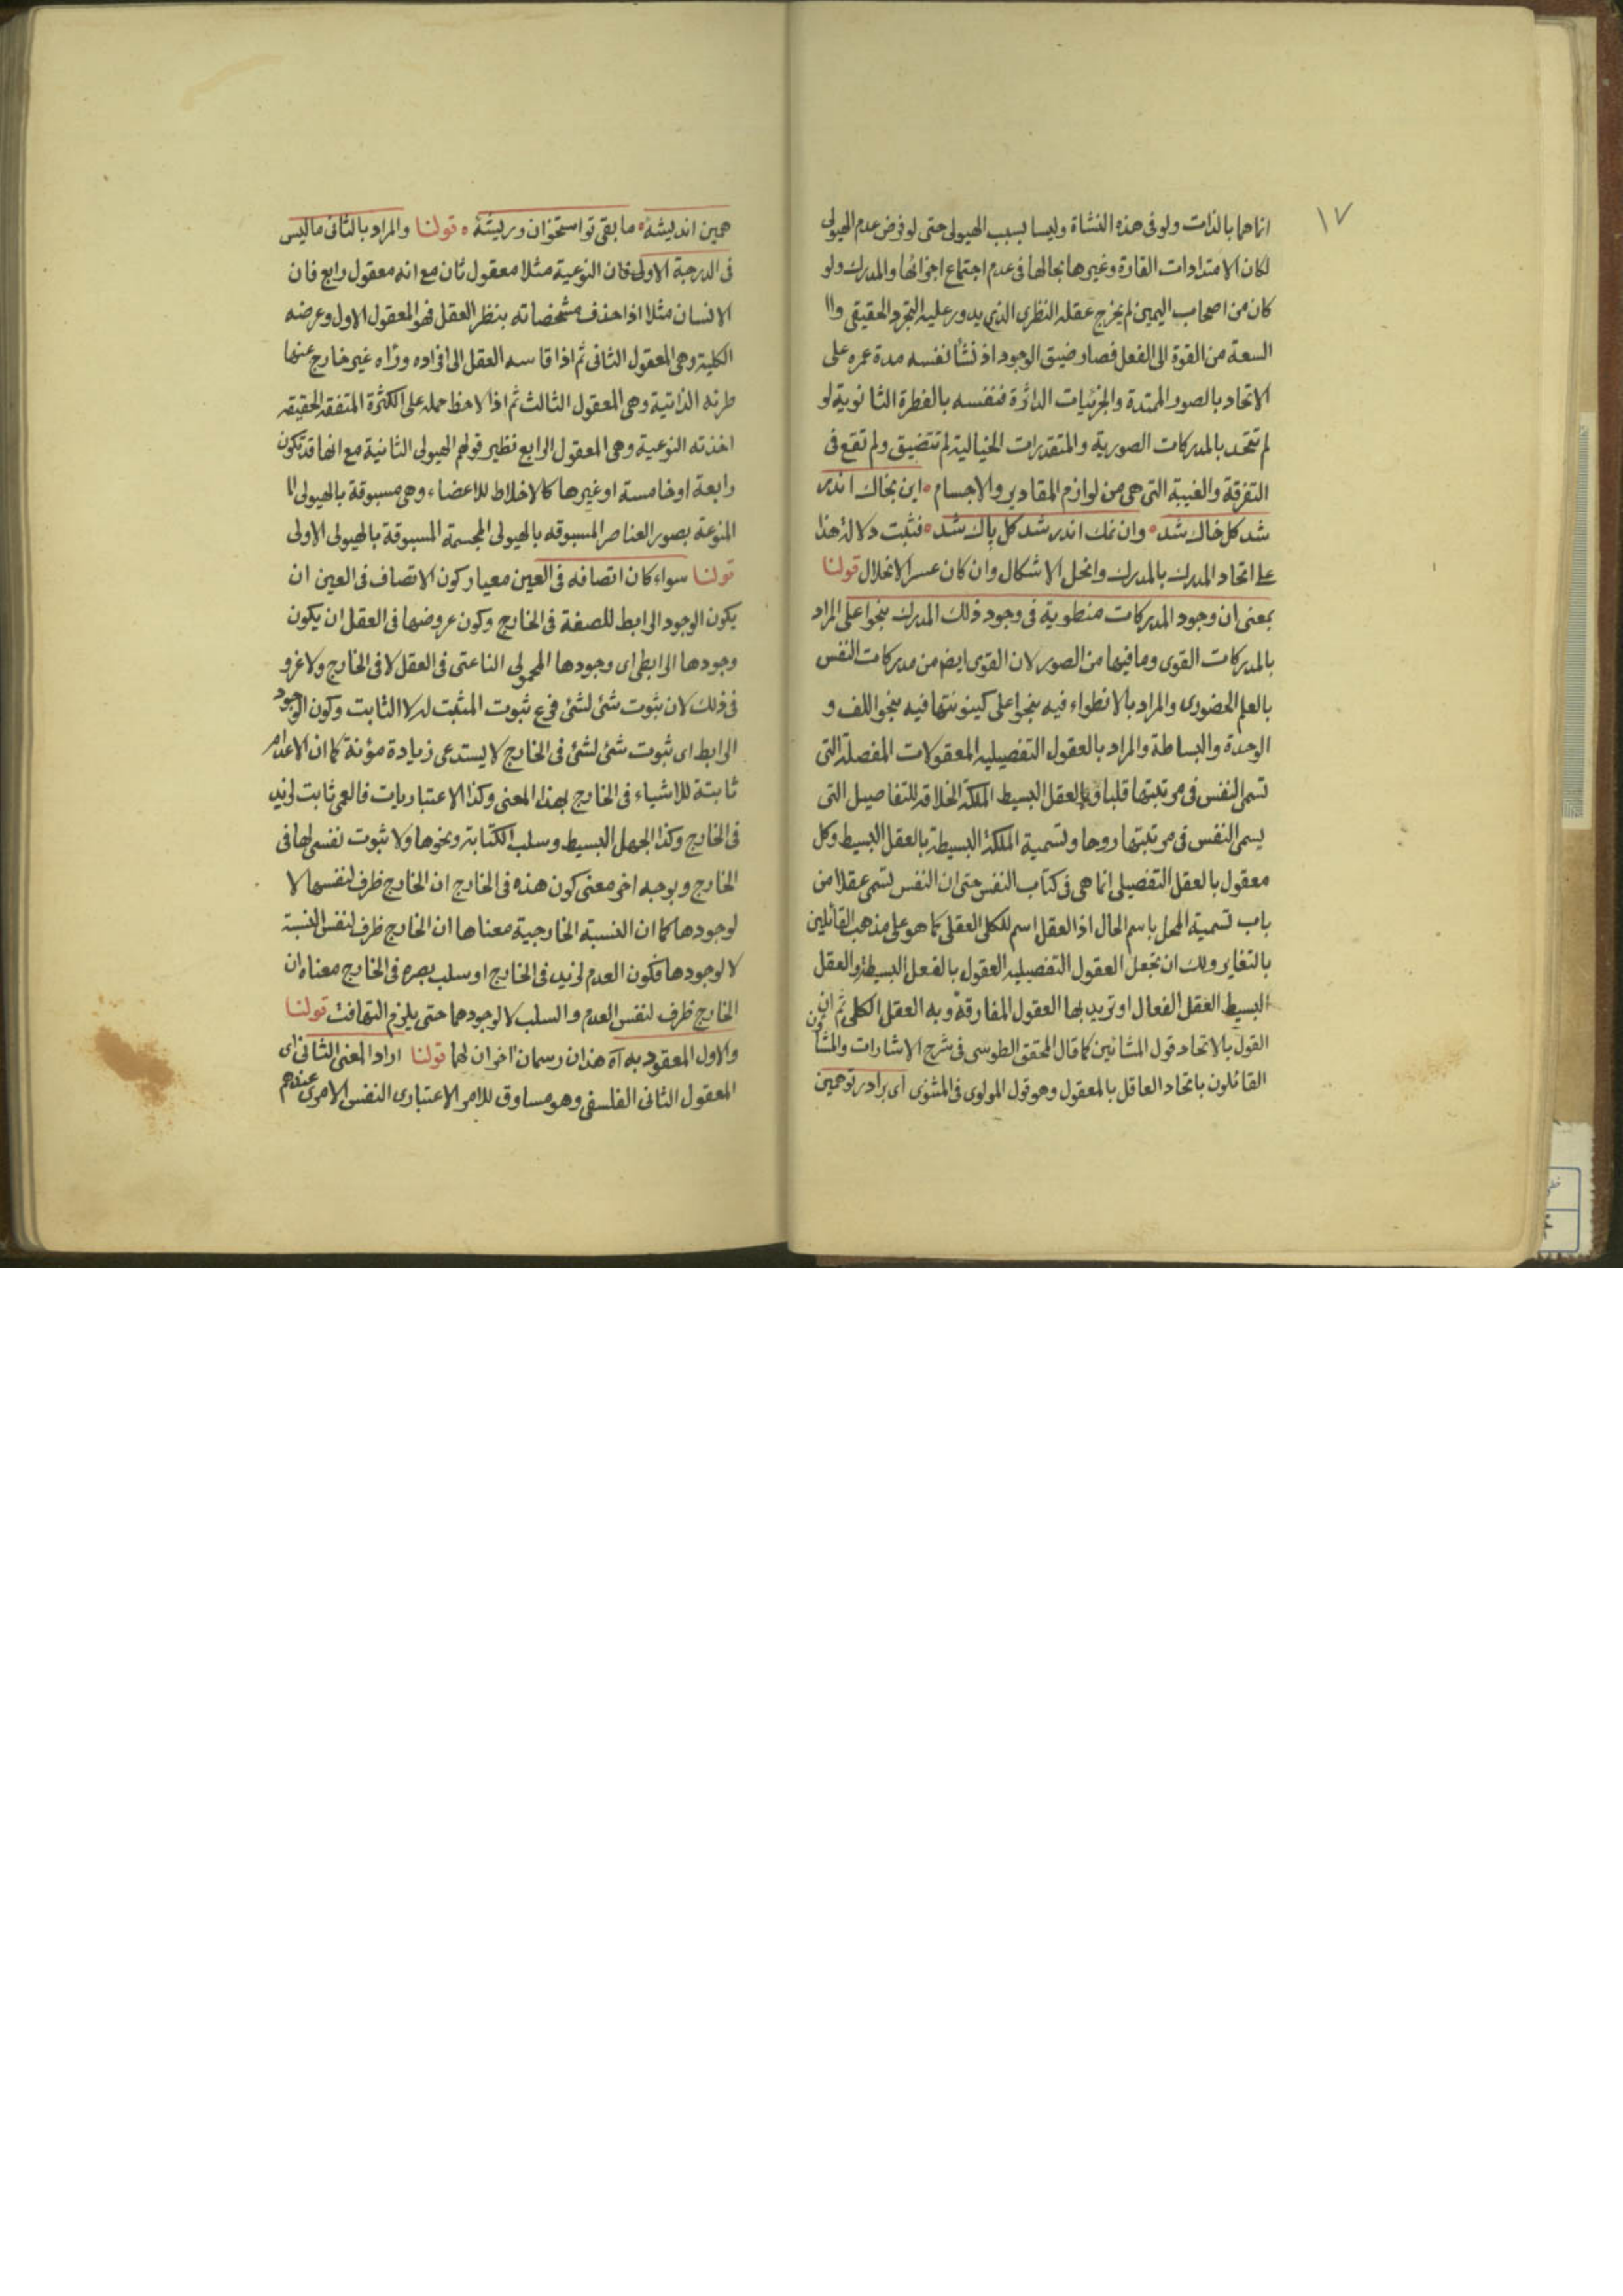 ١٧
انما هما بالذات ولو فى هذه النشاة وليسا بسبب الهيولى حتى لو فرض عدم الهيولى
لكان الامتدادات القارة وغيرها بحالها فى عدم اجتماع اجزائها والمدرك ولو
كان من اصحاب اليمين لم يخرج عقله النظرى الذى يدور عليه التجرد الحقيقى وا
السعة من القوة الى الفعل فصار ضيق الوجود اذ نشأ نفسه مدة عمره على
الاتحاد بالصور الممتدة والجزئيات الداثرة فنفسه بالفطرة الثانوية لو
لم تتحد بالمدركات الصورية والمتقدرات الخيالية لم تتضيق ولم تقع فى
التفرقة والغيبة التى هى من لوازم المقادير والاجسام اين بخاك اندر
شد كل خاك شد وان نمك اندر شد كل پاك شد فثبت دلالة هذا
على اتحاد المدرك بالمدرك وانحل الاشكال وان كان عسر الانحلال قولنا
بمعنى ان وجود المدركات منطوية فى وجود ذلك المدرك بنحو اعلى المراد
بالمدركات القوى وما فيها من الصور لان القوى ايضم من مدركات النفس
بالعلم الحضورى والمراد بالانطواء فيه بنحو اعلى كينونتها فيه بنحو اللف و
الوحدة والبساطة والمراد بالعقول التفصيليه المعقولات المفصلة التى
تسمى النفس فى مرتبتها قلبا وبالعقل البسيط الملكة الخلاقه للتفاصيل التى
يسمى النفس فى مرتبتها روحا وتسمية الملكة البسيطة بالعقل البسيط وكل
معقول بالعقل التفصيلى انما هى فى كتاب النفس حتى ان النفس تسمى عقلا من
باب تسمية المحل باسم الحال اذ العقل اسم للكلى العقلى كما هو على مذهب القائلين
بالتغاير ولك ان تجعل العقول التفصيليه العقول بالفعل البسيطة والعقل
البسيط العقل الفعال او تريد بها العقول المفارقة وبه العقل الكلى ثم ان
القول بالاتحاد قول المشائين كما قال المحقق الطوسى فى شرح الاشارات والمشاؤن
القائلون باتحاد العاقل بالمعقول وهو قول المولوى فى المثنوى اى برادر تو همين
همين انديشهٔ ما بقى تو استخوان وريشهٔ قولنا والمراد بالثانى ما ليس
فى الدرجة الاولى فان النوعية مثلا معقول ثان مع انه معقول رابع فان
الانسان مثلا اذا حذف مشخصاته بنظر العقل فهو المعقول الاول وعرضه
الكلية وهى المعقول الثانى ثم اذا قاسه العقل الى افراده ورٱه غير خارج عنها
طرئه الذاتية وهى المعقول الثالث ثم اذا لاحظ حمله على الكثرة المتفقه الحقيقه
اخذته النوعية وهى المعقول الرابع نظير قولهم الهيولى الثانية مع انها قد تكون
رابعة او خامسة او غيرها كالاخلاط للاعضاء وهى مسبوقة بالهيولى ا
المنوعة بصور العناصر المسبوقه بالهيولى المجسمة المسبوقة بالهيولى الاولى
قولنا سواء كان اتصافه فى العين معيار كون الاتصاف فى العين ان
يكون الوجود الرابط للصفة فى الخارج وكون عروضها فى العقل ان يكون
وجودها الرابطى اى وجودها المحمولى الناعتى فى العقل لا فى الخارج ولا غرو
فى ذلك لان ثبوت شئ لشئ فرع ثبوت المثبت له لا الثابت وكون الوجود
الرابط اى ثبوت شئ لشئ فى الخارج لا يستدعى زيادة مؤنة كما ان الاعدام
ثابتة للاشياء فى الخارج بهذا المعنى وكذا الاعتباريات فالعمى ثابت لزيد
فى الخارج وكذا الجهل البسيط وسلب الكتابة ونحوها ولا ثبوت نفسى لها فى
الخارج وبوجه اخر معنى كون هذه فى الخارج ان الخارج ظرف لنفسها لا
لوجودها كما ان النسبة الخارجية معناها ان الخارج ظرف لنفس النسبة
لا لوجودها فكون العدم لزيد فى الخارج او سلب بصره فى الخارج معناه ان
الخارج ظرف لنفس العدم والسلب لا لوجودهما حتى يلزم التهافت قولنا
والاول المعقود به آه هذان رسمان اخران لهما قولنا اراد المعنى الثانى اى
المعقول الثانى الفلسفى وهو مساوق للامر الاعتبارى النفس الامرى عندهم